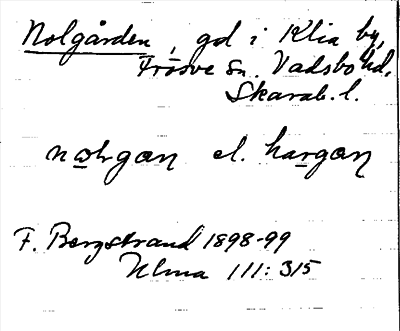 Nolgården, gd i Klia by,
Fröjve sn. Vadsbo hd.
Skarab. l.
nωlrgαn el. hαrgαn
F. Bergstrand 1898-99
Ulma 111: 315